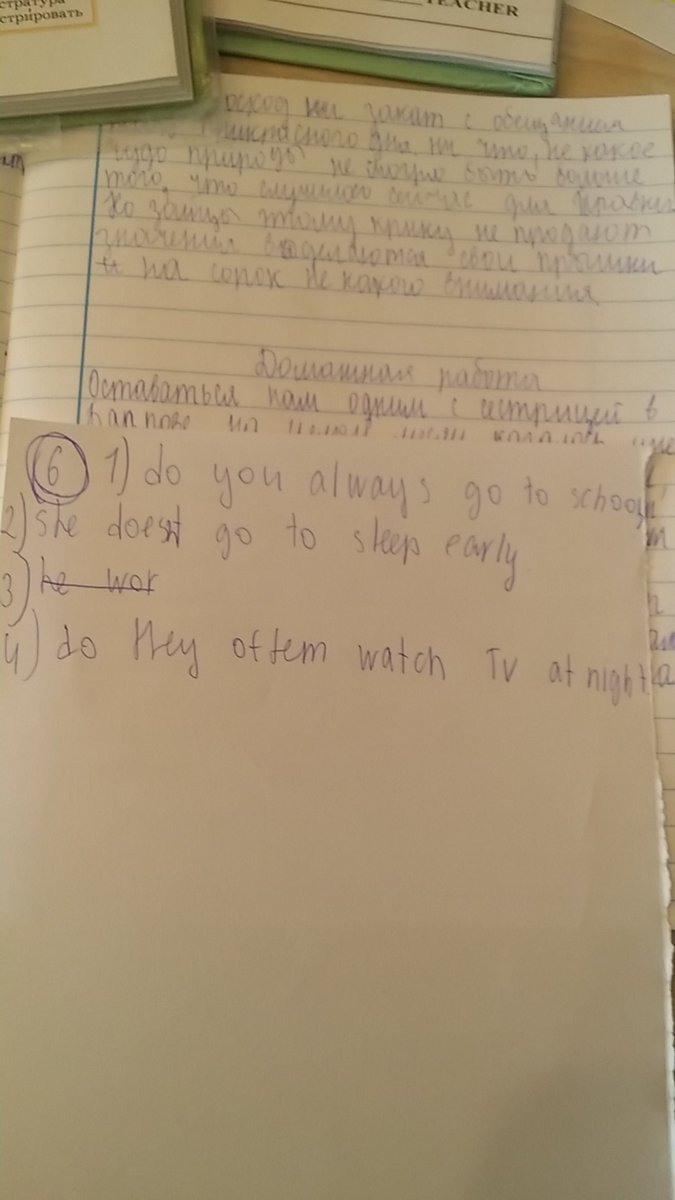 стратура
стрировать
TEACHER
ни закат с обещанием
дня ни что, не какое
чудо природы не могло быть больше
того, что случилось сейчас для
Но зайцы этому крику не продают
значения свои прыжки
и на сорок не какого внимания
Домашная работа
Оставаться нам одним с сестрицей в
6 1) do you always go to school
2) she doesnt go to sleep early
3) he wor
4) do they oftem watch TV at night